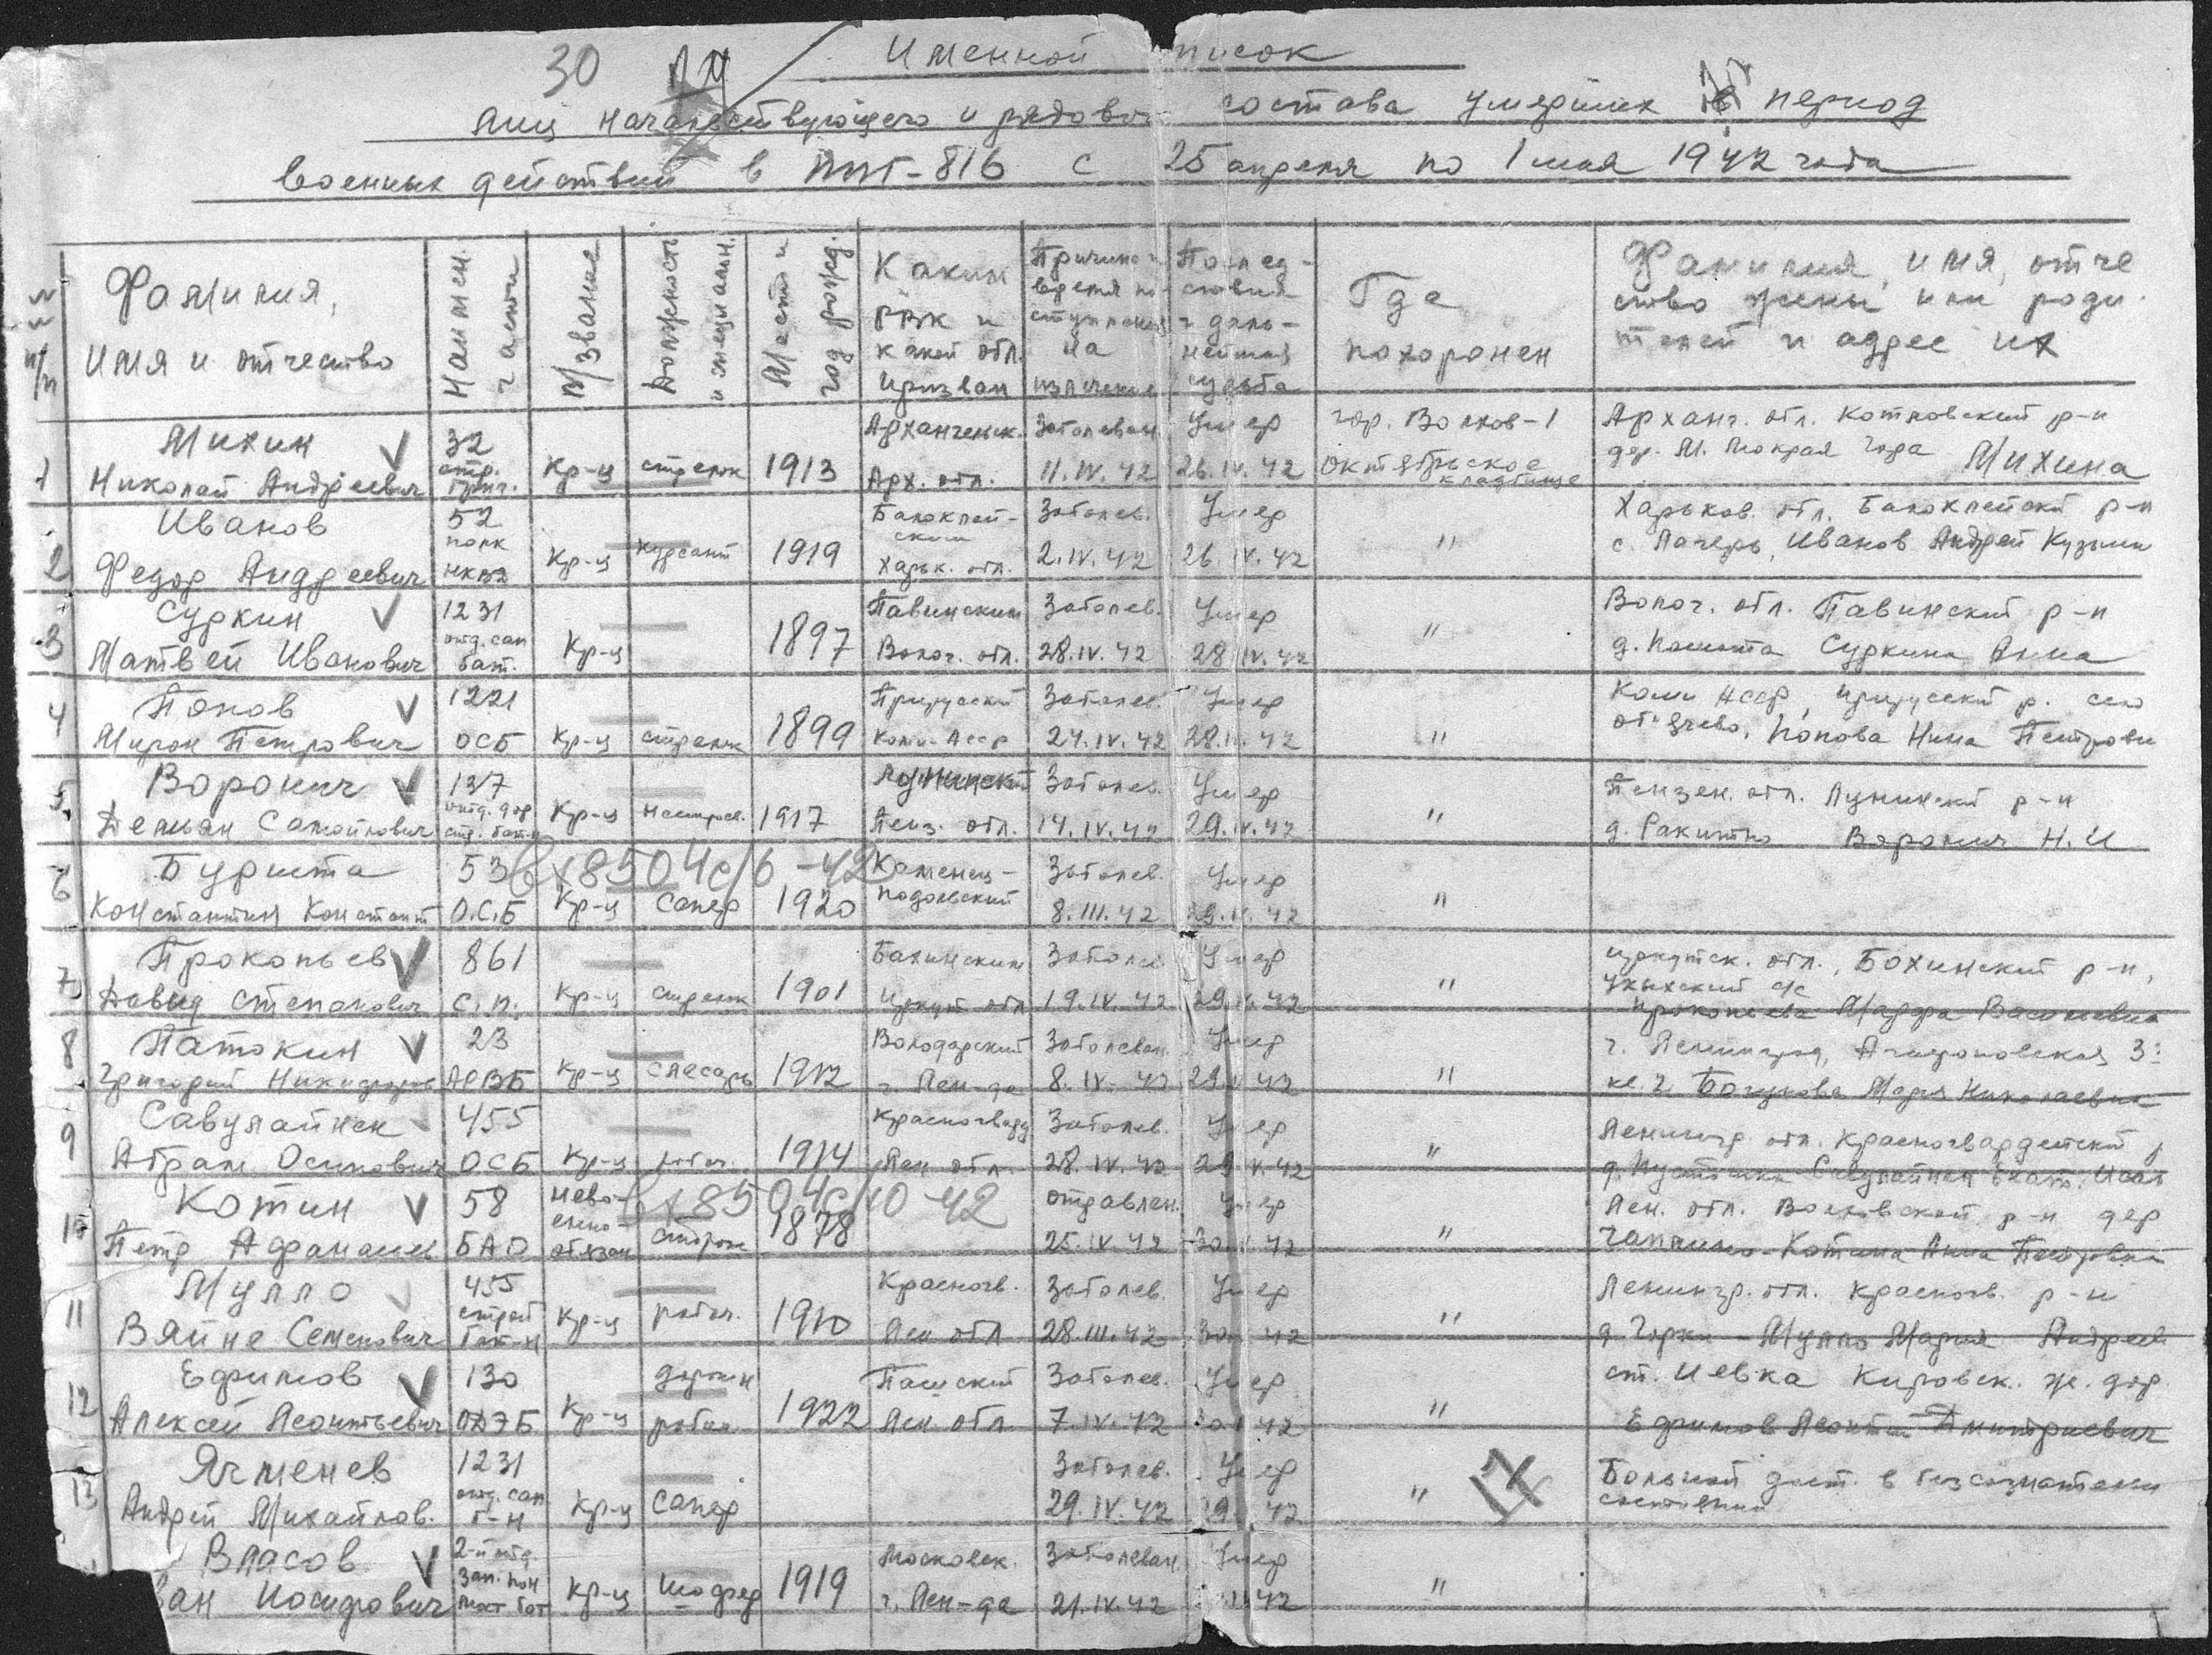 30
Именной список
лиц начальствующего и рядового состава умерших в период
военных действий в ППГ-816 с 25 апреля по 1 мая 1942 года
№№ п/п
Фамилия, имя и отчество
Наимен. части
В/звание
Должность и специальн.
Место и год рожд.
Каким РВК и какой обл. призван
Причина и время поступления на излечение
Последствия и дальнейшая судьба
Где похоронен
Фамилия, имя, отчество жены или родителей и адрес их
1 Михин Николай Андреевич 32 стр. бриг. Кр-ц стрелок 1913 Архангельск. Арх. обл. Заболеван. 11.IV.42 Умер 26.IV.42 гор. Волхов-1 Октябрьское кладбище Арханг. обл. Котловский р-н дер. М. Мокрая Гора Михина
2 Иванов Федор Андреевич 52 полк НКВД Кр-ц курсант 1919 Балаклейским Харьк. обл. Заболев. 2.IV.42 Умер 26.IV.42 " Харьков. обл. Балаклейский р-н с. Лагерь, Иванов Андрей Кузьми
3 Суркин Матвей Иванович 1231 отд. сап бат. Кр-ц 1897 Павинским Волог. обл. Заболев. 28.IV.42 Умер 28 IV.42 " Волог. обл. Павинский р-н д. Суркина Анна
4 Попов Мирон Петрович 1221 ОСБ Кр-ц стрелок 1899 Коми-Асср Заболев. 24.IV.42 Умер 28.IV.42 " Коми АССР, р. село Попова Нина Петровн
5. Воронич Демьян Самойлович 137 отд. дор стр. бат-н Кр-ц 1917 Лунинский Пенз. обл. Заболев. 14.IV.42 Умер 29.IV.42 " Пензен. обл. Лунинский р-н д. Ракитно Воронич Н.И
6 Бурита Константин Констант 53 О.С.Б Вх 8504с/6-42 Кр-ц сапер 1920 Каменец-Подольский Заболев. 8.III.42 Умер 29.IV.42 "
7 Прокопьев Давид Степанович 861 С.П. Кр-ц стрелок 1901 Бахинским Иркут обл Заболев. 19.IV.42 Умер 29.IV.42 " Иркутск. обл., Бохинский р-н, Укыхский с/с Прокопьева Марфа Васильевна
8 Патокин Григорий Никифоров 23 АРВБ Кр-ц слесарь 1912 Володарский г. Лен-да Заболеван. 8.IV.42 Умер 29. 42 " г. Ленинград, кв. 2 Богукова Мария Николаевна
9 Савулайнен Абрам Осипович 455 ОСБ Кр-ц рабоч. 1914 Красногвард Лен обл. Заболев. 28.IV.42 Умер 29.IV.42 " Ленингр. обл. Красногвардейский р д. Пустошка Савулайнен Екат. Исак
10 Котин Петр Афанасьев 58 БАО Вх 8504с/10-42 невоеннообязан сторож 1878 отравлен. 25.IV.42 Умер 30. 42 " Лен. обл. Волховской р-н дер Чаплино-Котина Анна Петровна
11 Мулло Вяйне Семенович 455 строй бат-н Кр-ц рабоч. 1910 Красногв. Лен обл Заболев. 28.III.42 Умер 30 42 " Ленингр. обл. Красногв. р-н д. Горки - Мулло Мария Андреев
12 Ефимов Алексей Леонтьевич 130 ОДЭБ Кр-ц дорожн рабоч. 1922 Пашский Лен. обл Заболев. 7.IV.42 Умер 30. 42 " ст. Иевка Кировск. ж. дор. Ефимов Леонтий Дмитриевич
13 Ячменев Андрей Михайлов. 1231 отд. сап б-н Кр-ц сапер Заболев. 29.IV.42 Умер 29 42 " 17 Больной дост. в безсознательн состоянии
Власов ван Иосифович 2-й отд. зап. пон мост бат Кр-ц шофер 1919 Московск. г. Лен-да Заболеван. 21.IV.42 Умер 42 "